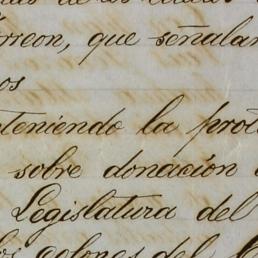 rreon, que señalan
os
teniendo la prot
sobre donación
Legislatura del
los colonos del